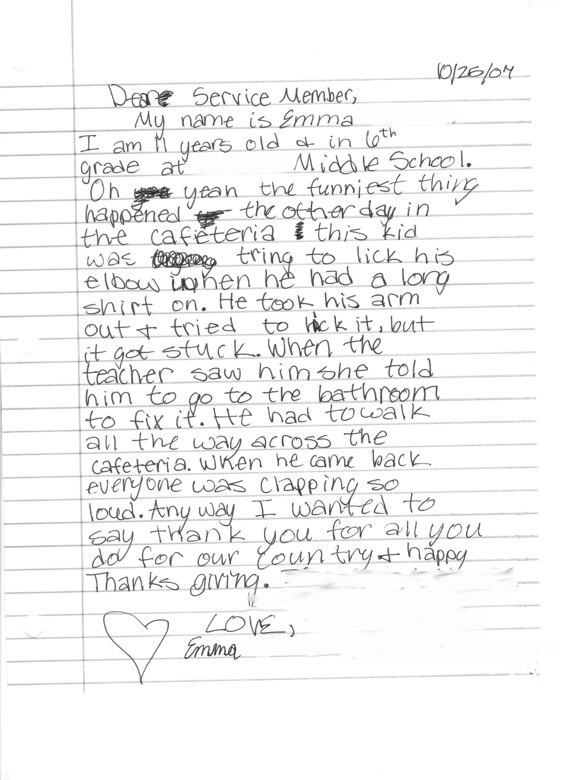 10/26/07
Dear Service Member,
My name is Emma
I am 11 years old & in 6th
grade at Middle School.
Oh yeah the funniest thing
happened the other day in
the cafeteria this kid
was tring to lick his
elbow when he had a long
shirt on. He took his arm
out & tried to lick it, but
it got stuck. When the
teacher saw him she told
him to go to the bathroom
to fix it. He had to walk
all the way across the
cafeteria. When he came back
everyone was clapping so
loud. Any way I wanted to
say thank you for all you
do for our Country & happy
Thanks giving.
LOVE,
Emma